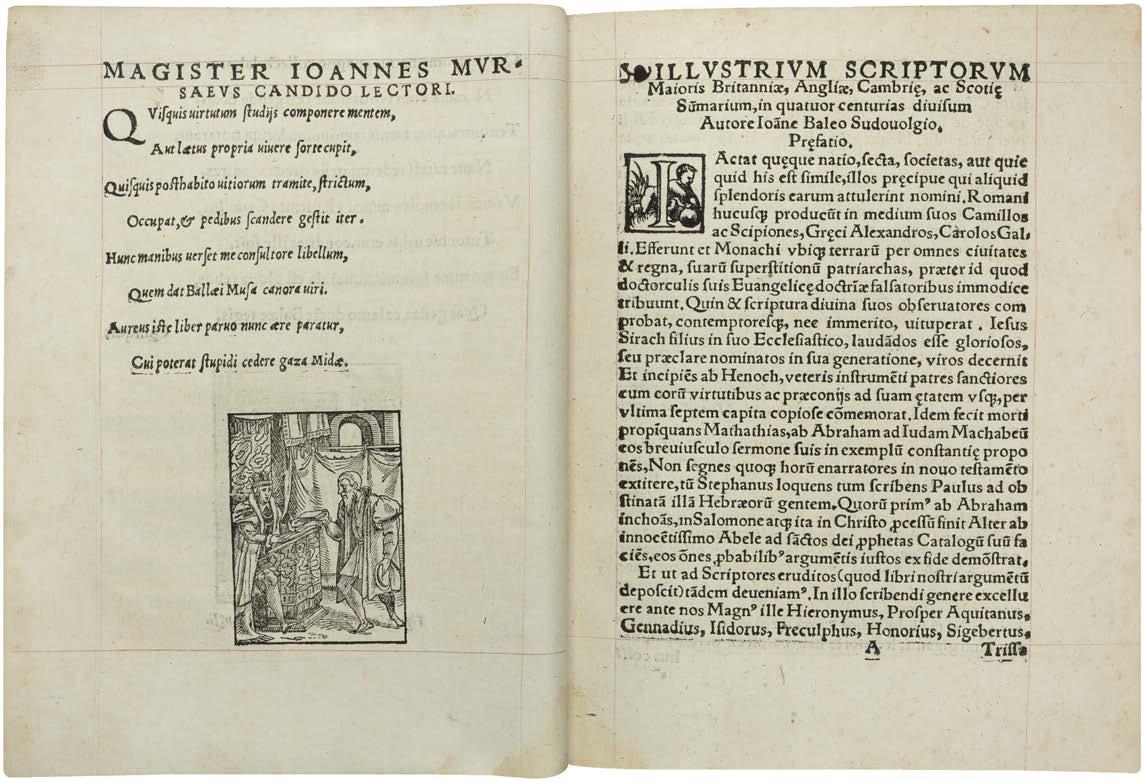 MAGISTER IOANNES MVR-
SAEVS CANDIDO LECTORI.
QVisquis uirtutum studijs componere mentem,
Aut lætus propria uiuere sorte cupit,
Quisquis posthabito uitiorum tramite, strictum,
Occupat, & pedibus scandere gestit iter.
Hunc manibus uerset me consultore libellum,
Quem dat Ballæi Musa canora uiri.
Aureus iste liber paruo nunc ære paratur,
Cui poterat stupidi cedere gaza Midæ.
ILLVSTRIVM SCRIPTORVM
Maioris Britanniæ, Angliæ, Cambrię, ac Scotię
Sūmarium, in quatuor centurias diuisum
Autore Ioāne Baleo Sudouolgio.
Pręfatio.
IActat quęque natio, secta, societas, aut quie
quid his est simile, illos pręcipue qui aliquid
splendoris earum attulerint nomini. Romani
hucusq; producūt in medium suos Camillos
ac Scipiones, Gręci Alexandros, Cārolos Gal-
li. Efferunt et Monachi vbiq; terrarū per omnes ciuitates
& regna, suarū superstitionū patriarchas, præter id quod
doctorculis suis Euangelicę doctrīæ falsatoribus immodice
tribuunt. Quin & scriptura diuina suos obseruatores com
probat, contemptoresq;, nec immerito, vituperat. Iesus
Sirach filius in suo Ecclesiastico, laudādos esse gloriosos,
seu præclare nominatos in sua generatione, viros decernit
Et incipiēs ab Henoch, veteris instrumēti patres sanctiores
cum corū virtutibus ac præconijs ad suam ętatem vsq;, per
vltima septem capita copiose cōmemorat. Idem fecit morti
propīquans Mathathias, ab Abraham ad Iudam Machabeū
eos breuiusculo sermone suis in exemplū constantię propo
nēs, Non segnes quoq; horū enarratores in nouo testamēto
extitere, tū Stephanus loquens tum scribens Paulus ad ob
stinatā illā Hebræorū gentem. Quorū primꝰ ab Abraham
inchoās, in Salomone atq; ita in Christo ꝓcessū finit Alter ab
innocētissimo Abele ad sāctos dei ꝓphetas Catalogū suū fa
ciēs, eos ōnes ꝓbabilibꝰ argumētis iustos ex fide demōstrat.
Et ut ad Scriptores eruditos (quod libri nostri argumētū
deposcit) tādem deueniamꝰ. In illo scribendi genere excellu
ere ante nos Magnꝰ ille Hieronymus, Prosper Aquitanus,
Gennadius, Isidorus, Freculphus, Honorius, Sigebertus,
A Triss